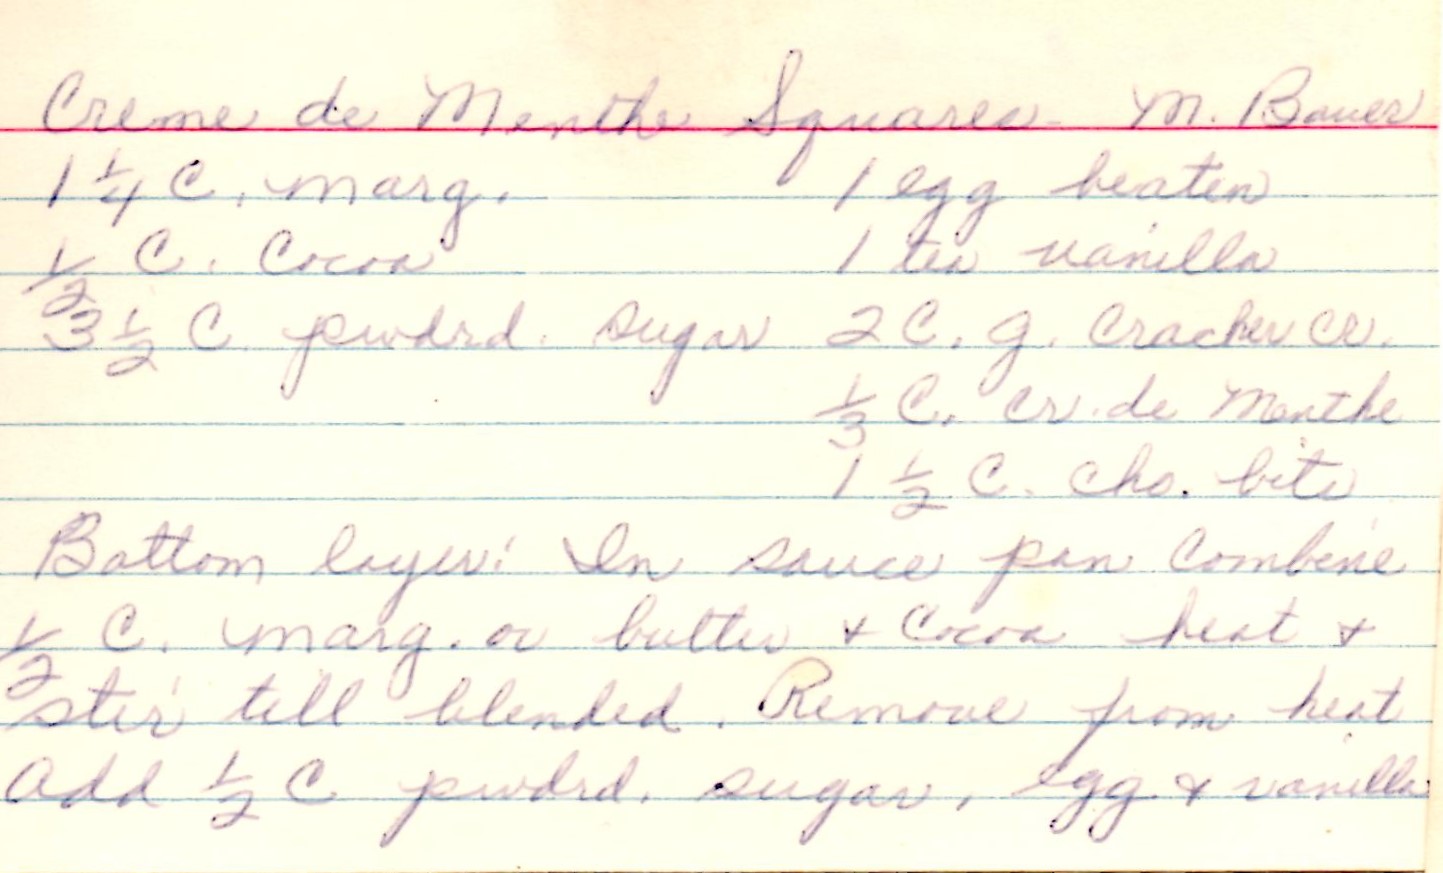 Creme de Menthe Squares - M. Bauer
1 1/4 C. marg. 1 egg beaten
1/2 C. Cocoa 1 tea vanilla
3 1/2 C. pwdrd. sugar 2 C. g. Cracker Cr.
1/3 C. Cr. de Menthe
1 1/2 C. cho. bits
Bottom layer: In sauce pan Combine
1/2 C. marg. or butter & Cocoa heat &
stir till blended. Remove from heat
add 1/2 C pwdrd. sugar, egg & vanilla